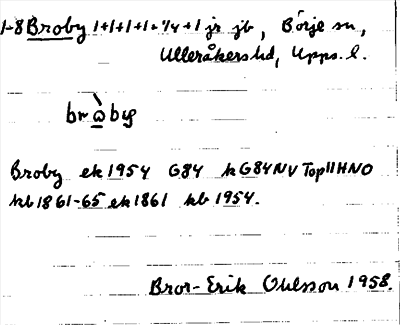 1-8 Broby 1+1+1+1+1/4+1 jr jb, Börje sn,
Ulleråkers hd, Upps. l.
bròby
Broby ek 1954 G84 kG84NV Top11HNO
kb 1861-65 ek 1861 kb 1954.
Bror-Erik Ohlsson 1958.